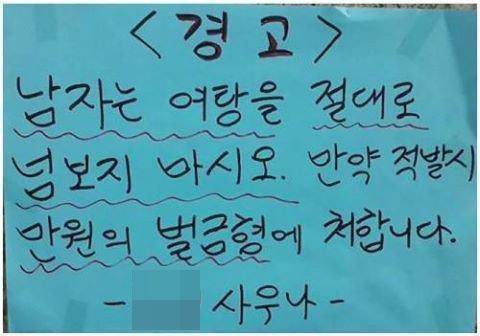 <경고>
남자는 여탕을 절대로
넘보지 마시오. 만약 적발시
만원의 벌금형에 처합니다.
- 사우나 -